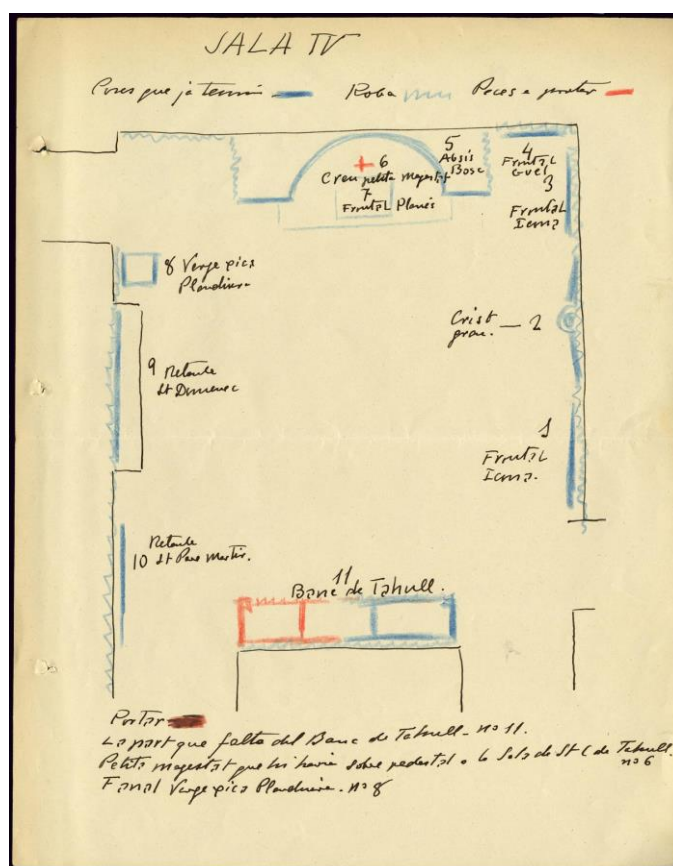 SALA IV
Coses que ja tenim Roba Peces a portar
5
Absis
Bosc
4
Frontal
Guel
6
Creu petita Majestat
7
Frontal Planés
3
Frontal
Icona
8 Verge pica
Plandiura
Crist
gran. — 2
9 Retaule
St Domenec
1
Frontal
Icona.
Retaule
10 St Pere Martir.
11
Banc de Tahull.
Portar
La part que falta del Banc de Tahull - nº 11.
Petita majestat que hi havia sobre pedestal a la Sala de St C de Tahull.
nº 6
Fanal Verge pica Plandiura. nº 8